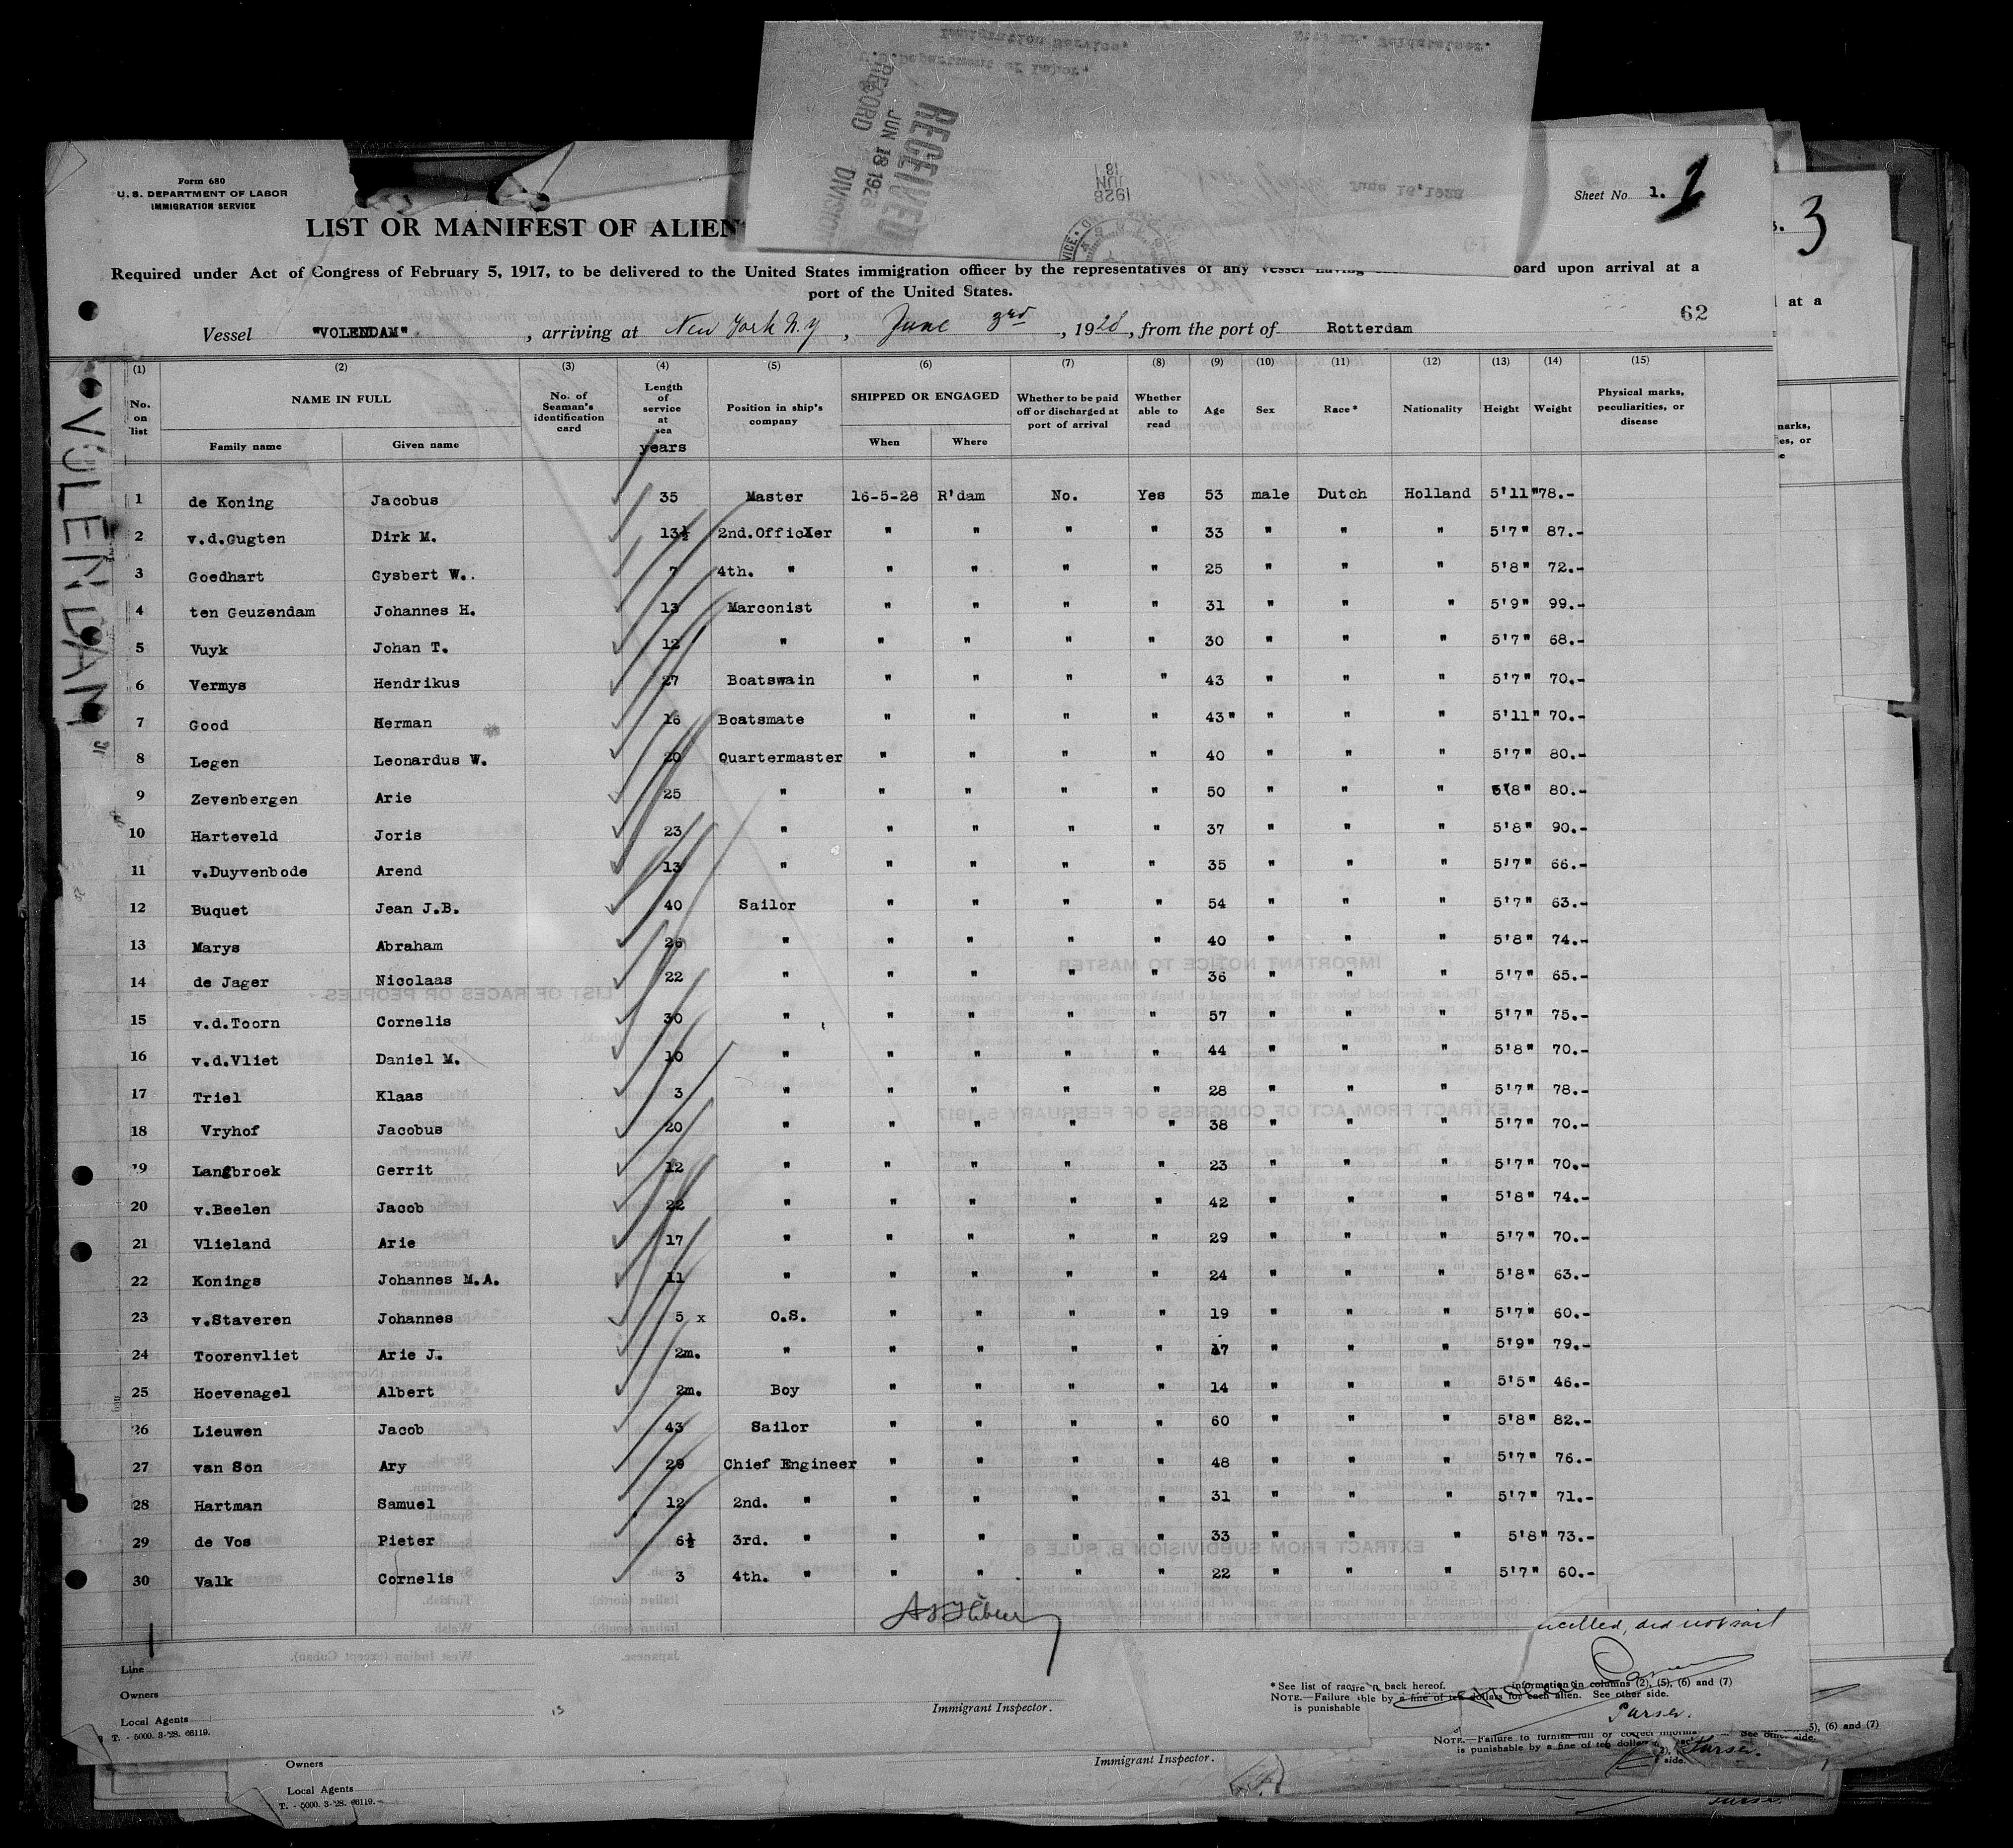 Immigration Service,
U.S. Department of Labor.
RECEIVED
JUN 18 1928
RECORD DIVISION
1928
JUN
18
June 16, 1928
Form 680
U. S. DEPARTMENT OF LABOR
IMMIGRATION SERVICE
Sheet No 1. 1
3
LIST OR MANIFEST OF ALIEN
Required under Act of Congress of February 5, 1917, to be delivered to the United States immigration officer by the representatives of any vessel having oard upon arrival at a
port of the United States.
at a
62
Vessel "VOLENDAM", arriving at New York N.Y, June 3rd, 1928, from the port of Rotterdam
VOLENDAM
(1) (2) (3) (4) (5) (6) (7) (8) (9) (10) (11) (12) (13) (14) (15)
No. on list NAME IN FULL Family name Given name No. of Seaman's identification card Length of service at sea years Position in ship's company SHIPPED OR ENGAGED When Where Whether to be paid off or discharged at port of arrival Whether able to read Age Sex Race* Nationality Height Weight Physical marks, peculiarities, or disease
1 de Koning Jacobus 35 Master 16-5-28 R'dam No. Yes 53 male Dutch Holland 5'11" 78.-
2 v.d.Gugten Dirk M. 13½ 2nd.Officer " " " " 33 " " " 5'7" 87.-
3 Goedhart Gysbert W.. 7 4th. " " " " " 25 " " " 5'8" 72.-
4 ten Geuzendam Johannes H. 13 Marconist " " " " 31 " " " 5'9" 99.-
5 Vuyk Johan T. 12 " " " " " 30 " " " 5'7" 68.-
6 Vermys Hendrikus 27 Boatswain " " " " 43 " " " 5'7" 70.-
7 Good Herman 16 Boatsmate " " " " 43" " " " 5'11" 70.-
8 Legen Leonardus W. 20 Quartermaster " " " " 40 " " " 5'7" 80.-
9 Zevenbergen Arie 25 " " " " " 50 " " " 5'8" 80.-
10 Harteveld Joris 23 " " " " " 37 " " " 5'8" 90.-
11 v.Duyvenbode Arend 13 " " " " " 35 " " " 5'7" 66.-
12 Buquet Jean J.B. 40 Sailor " " " " 54 " " " 5'7" 63.-
13 Marys Abraham 26 " " " " " 40 " " " 5'8" 74.-
14 de Jager Nicolaas 22 " " " " " 36 " " " 5'7" 65.-
15 v.d.Toorn Cornelis 30 " " " " " 57 " " " 5'7" 75.-
16 v.d.Vliet Daniel M. 10 " " " " " 44 " " " 5'8" 70.-
17 Triel Klaas 3 " " " " " 28 " " " 5'7" 78.-
18 Vryhof Jacobus 20 " " " " " 38 " " " 5'7" 70.-
19 Langbroek Gerrit 12 " " " " " 23 " " " 5'7" 70.-
20 v.Beelen Jacob 22 " " " " " 42 " " " 5'8" 74.-
21 Vlieland Arie 17 " " " " " 29 " " " 5'7" 70.-
22 Konings Johannes M.A. 11 " " " " " 24 " " " 5'8" 63.-
23 v.Staveren Johannes 5 x O.S. " " " " 19 " " " 5'7" 60.-
24 Toorenvliet Arie J. 2m. " " " " " 17 " " " 5'9" 79.-
25 Hoevenagel Albert 2m. Boy " " " " 14 " " " 5'5" 46.-
26 Lieuwen Jacob 43 Sailor " " " " 60 " " " 5'8" 82.-
27 van Son Ary 29 Chief Engineer " " " " 48 " " " 5'7" 76.-
28 Hartman Samuel 12 2nd. " " " " " 31 " " " 5'7" 71.-
29 de Vos Pieter 6½ 3rd. " " " " " 33 " " " 5'8" 73.-
30 Valk Cornelis 3 4th. " " " " " 22 " " " 5'7" 60.-
ncelled, did not sail
Line
Owners
Local Agents
T. - 5000. 3-28. 66119.
Immigrant Inspector.
*See list of races on back hereof.
information in columns (2), (5), (6) and (7)
NOTE.—Failure
ble by a fine of ten dollars for each alien. See other side.
is punishable
Purser.
NOTE.—Failure to turnish full or correct
5), (6) and (7)
is punishable by a fine of ten dollar
See other side.
Purser.
Owners
Local Agents
T. - 5000. 3-28. 66119.
Immigrant Inspector.
Purser.